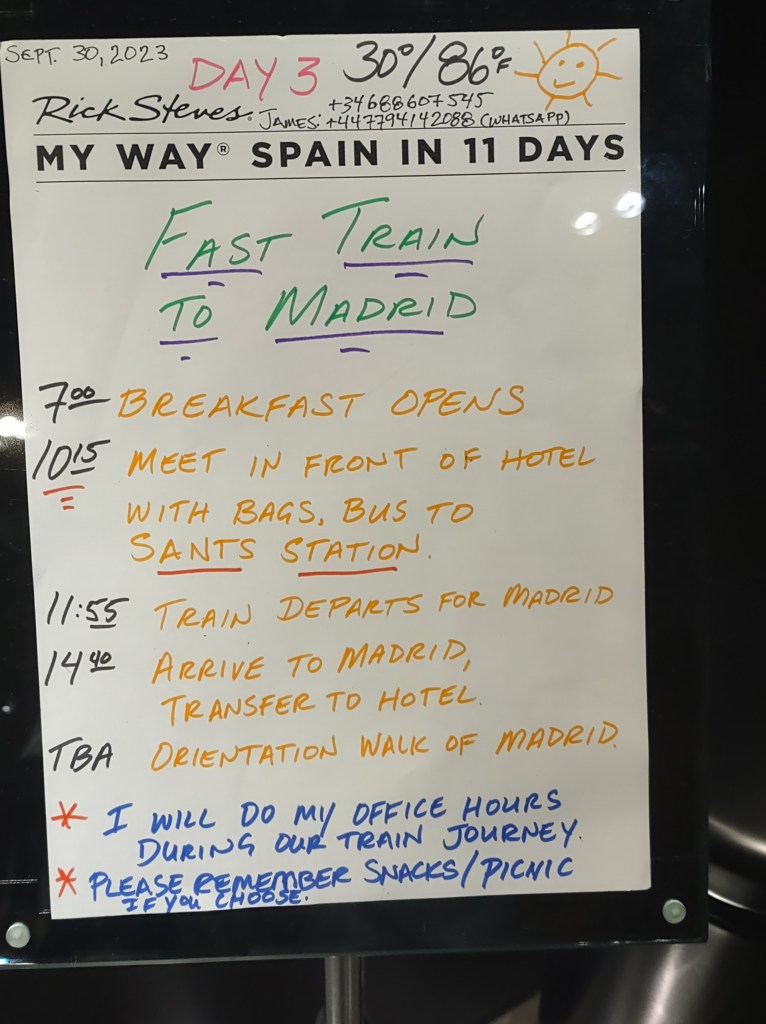 SEPT. 30, 2023
DAY 3 30°/86°F
Rick Steves® +34688607545
JAMES: +447794142088 (WHATSAPP)
MY WAY® SPAIN IN 11 DAYS
FAST TRAIN
TO MADRID
7⁰⁰ BREAKFAST OPENS
10¹⁵ MEET IN FRONT OF HOTEL
WITH BAGS, BUS TO
SANTS STATION.
11:55 TRAIN DEPARTS FOR MADRID
14⁴⁰ ARRIVE TO MADRID,
TRANSFER TO HOTEL.
TBA ORIENTATION WALK OF MADRID.
* I WILL DO MY OFFICE HOURS
DURING OUR TRAIN JOURNEY.
* PLEASE REMEMBER SNACKS/PICNIC
IF YOU CHOOSE.